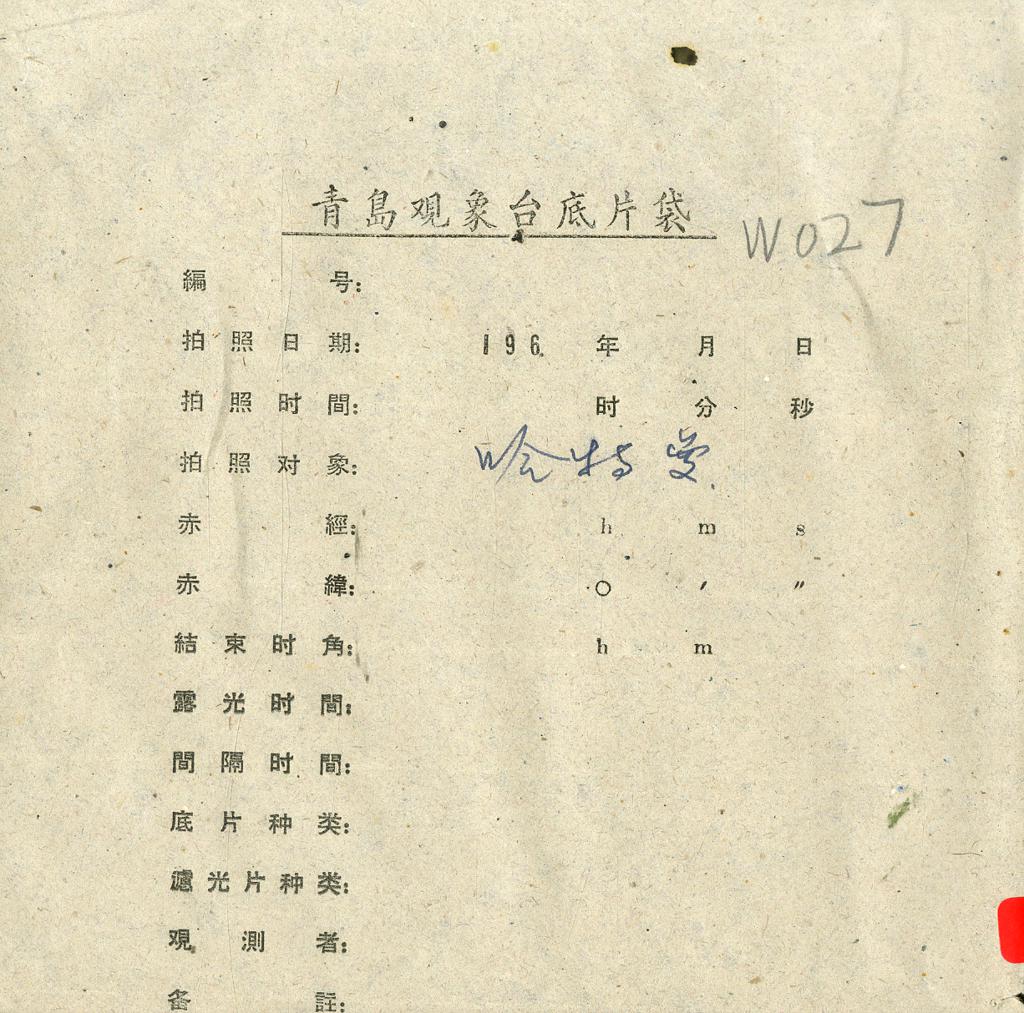 青島观象台底片袋
W027
編号：
拍照日期： 196 年 月 日
拍照时間： 时 分 秒
拍照对象： 哈特曼
赤經： h m s
赤緯： ○ ′ ″
結束时角： h m
露光时間：
間隔时間：
底片种类：
濾光片种类：
观測者：
备註：